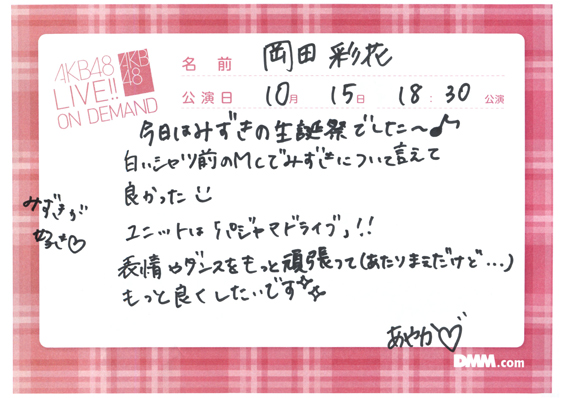 AKB48
LIVE!!
ON DEMAND
AKB
48
名前 岡田彩花
公演日 10月 15日 18:30 公演
今日はみずきの生誕祭でした〜♪
白いシャツ前のMCでみずきについて言えて
良かった
みずきが
好き♡
ユニットは「パジャマドライブ」!!
表情やダンスをもっと頑張って(あたりまえだけど…)
もっと良くしたいです☆☆
あやか♡
DMM.com